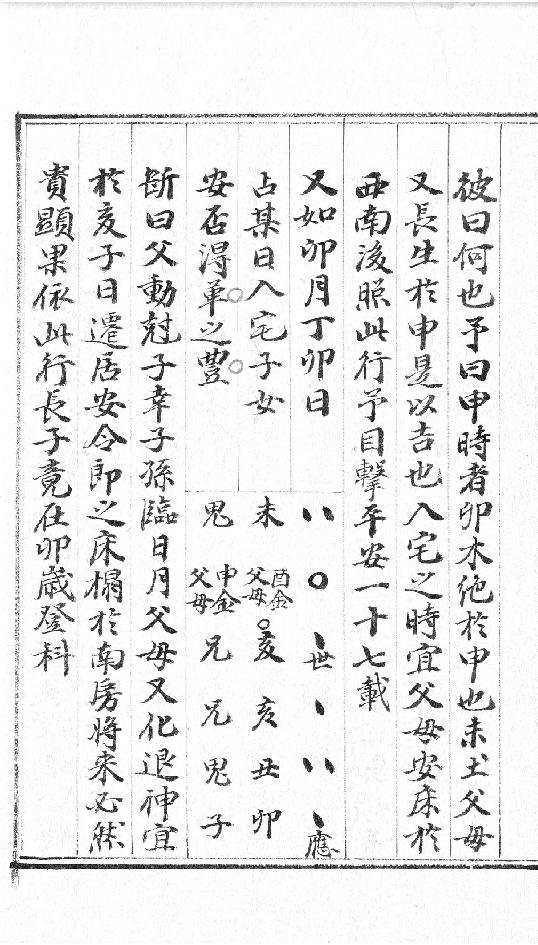 彼曰何也予曰申時者卯木絶於申也未土父母
又長生於申是以吉也入宅之時宜父母安床於
西南後照此行予目擊平安一十七載
又如卯月丁卯日
占某日入宅子女
安否淂革之豐
〃 ○ 、世 、 〃 、應
未 酉金父母 ○亥 亥 丑 卯
鬼 申金父母 兄 兄 鬼 子
斷曰父動尅子幸子孫臨日月父母又化退神宜
於亥子日遷居安令郎之床榻於南房將來必然
貴顯果依此行長子竟在卯歲登科